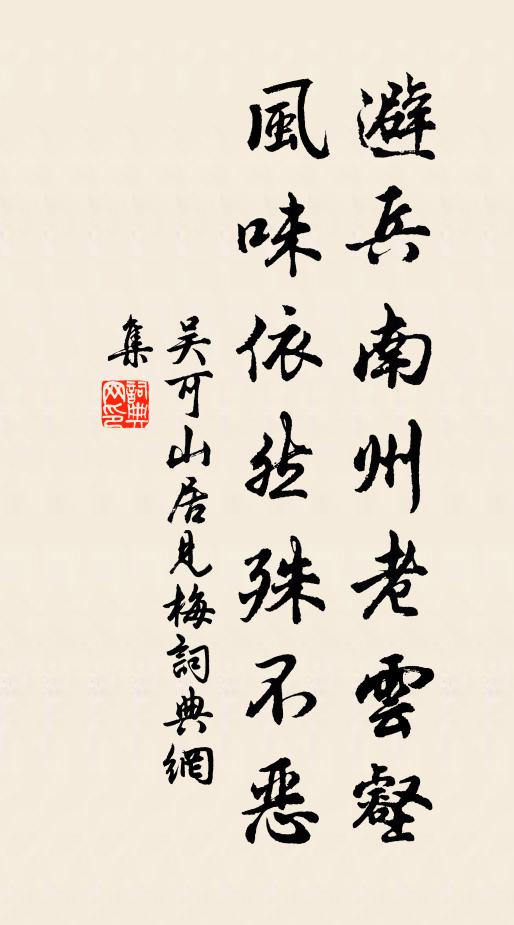 避兵南州老雲壑
風味依然殊不惡
吴可山居見梅詞典網
集
詞典網印